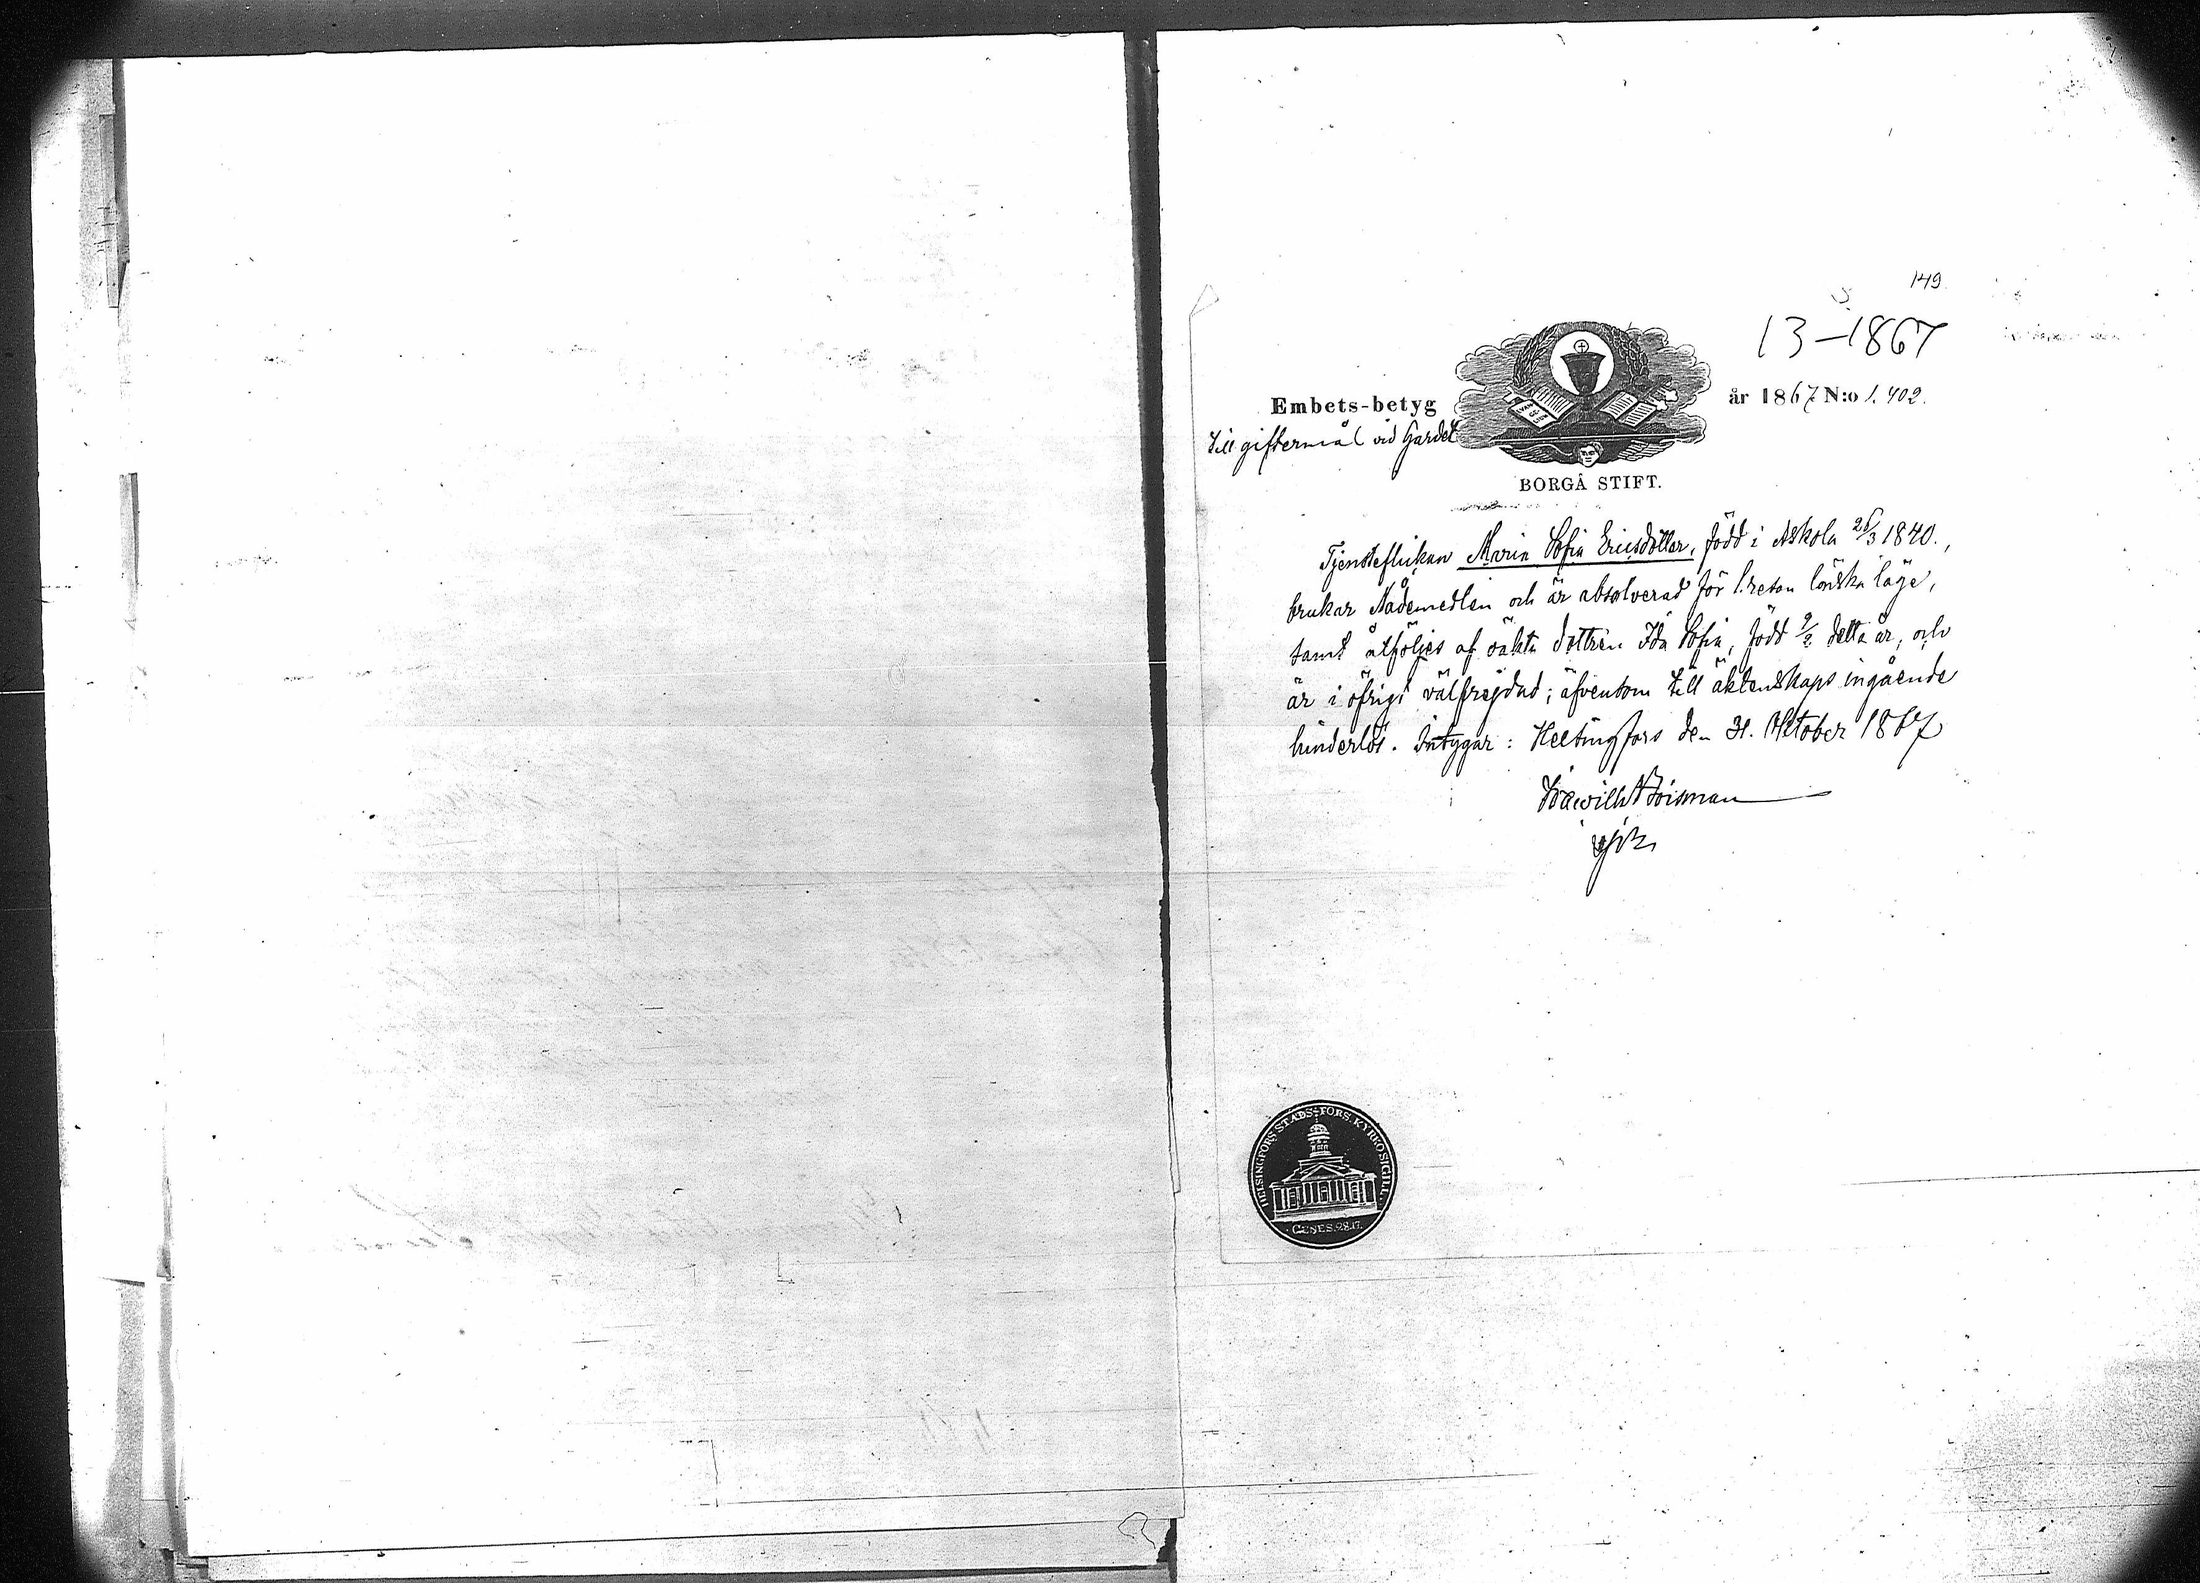 149
13-1867
Embets-betyg
år 1867 N:o 1.402.
till giftermål vid Gardet
BORGÅ STIFT.
Tjensteflickan Maria Sofia Ericsdotter, född i Askola 25/3 1840.,
brukar Nådemedlen och är absolverad för 1. resan lönska läge,
samt åtföljes af oäkta dottren Ida Sofia, född 9/2 detta år, och
är i öfrigt välfrejdad; äfvensom till äktenskaps ingående
hinderlös. Intygar: Helsingfors den 31. Oktober 1867
HELSINGFORS STADS-FORS. KYRKOSIGILL.
GENES. 28.17.